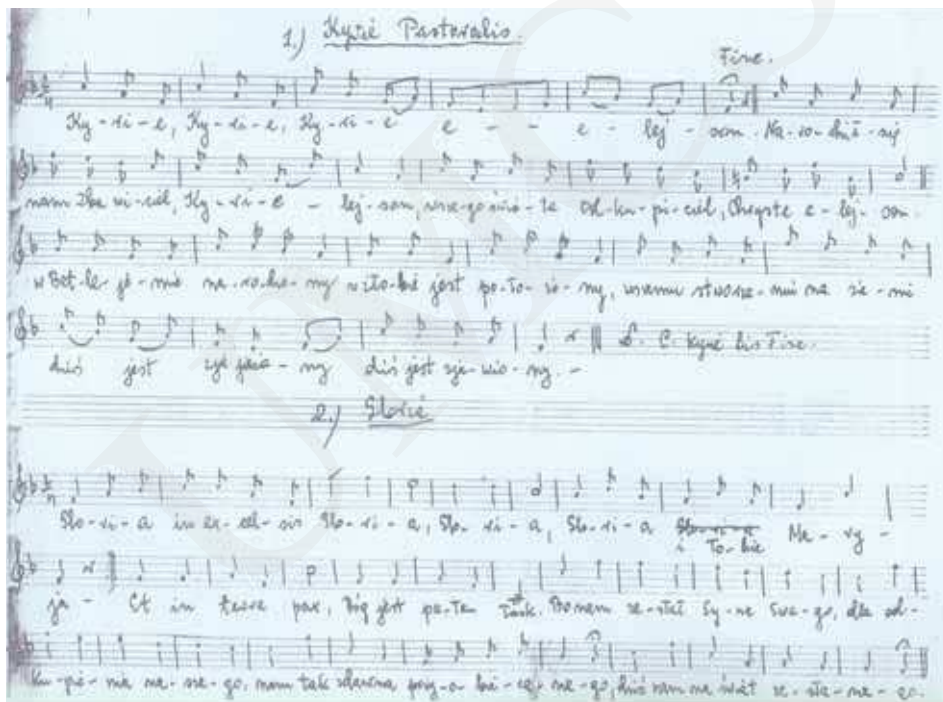 1.) Kyrie Pastoralis.
Fine.
Ky-ri-e, Ky-ri-e, Ky-ri-e e - - e - lej - son. Na-ro-dził-się
nam Zba wi-ciel, Ky-ri-e - lej-son, wsze-go świa-ta Od-ku-pi-ciel, Chryste e-lej-son
w Bet-le-je-mie na-ro-dzo-ny w żło-bie jest po-ło-żo-ny, na zie-mi
dziś jest - ny dziś jest zja-wio-ny -
D. C. Kyrie bis Fine.
2.)
Glo-ri-a in ex-cel-sis Glo-ri-a, Glo-ri-a, Glo-ri-a i To-bie Ma-ry-
ja - Et in terra pax, Bóg jest Bo nam ze-słał Sy-na Swe-go, dla od-
ku-pie-nia na-sze-go, nam tak dziś nam na świat ze-sła-ne-go.